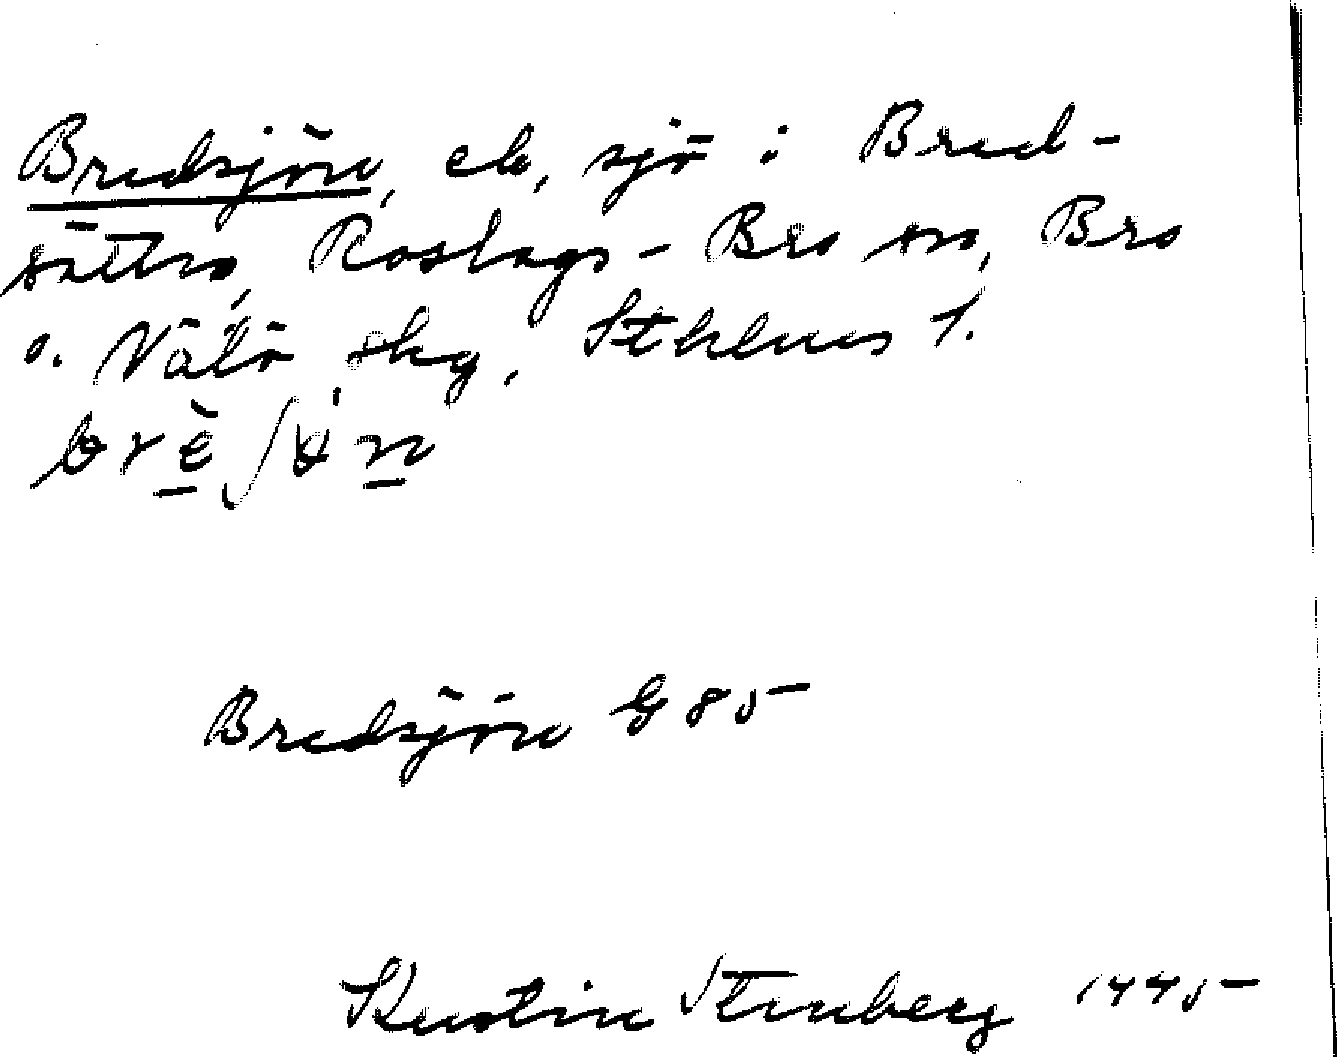 Bredsjön, eb, sjö i Bred-
sättra, Roslags-Bro sn, Bro
o. Vätö skg, Sthlms l.
Bredsjön G 85
Kerstin Stenberg 1945